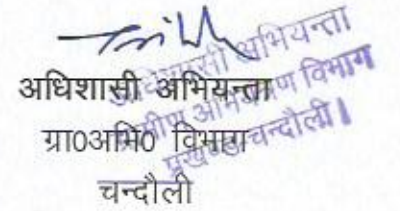 अधिशासी अभियन्ता
ग्रा0अभि0 विभाग
चन्दौली
अधिशासी अभियन्ता
ग्रामीण अभियंत्रण विभाग
प्रखण्ड चन्दौली।